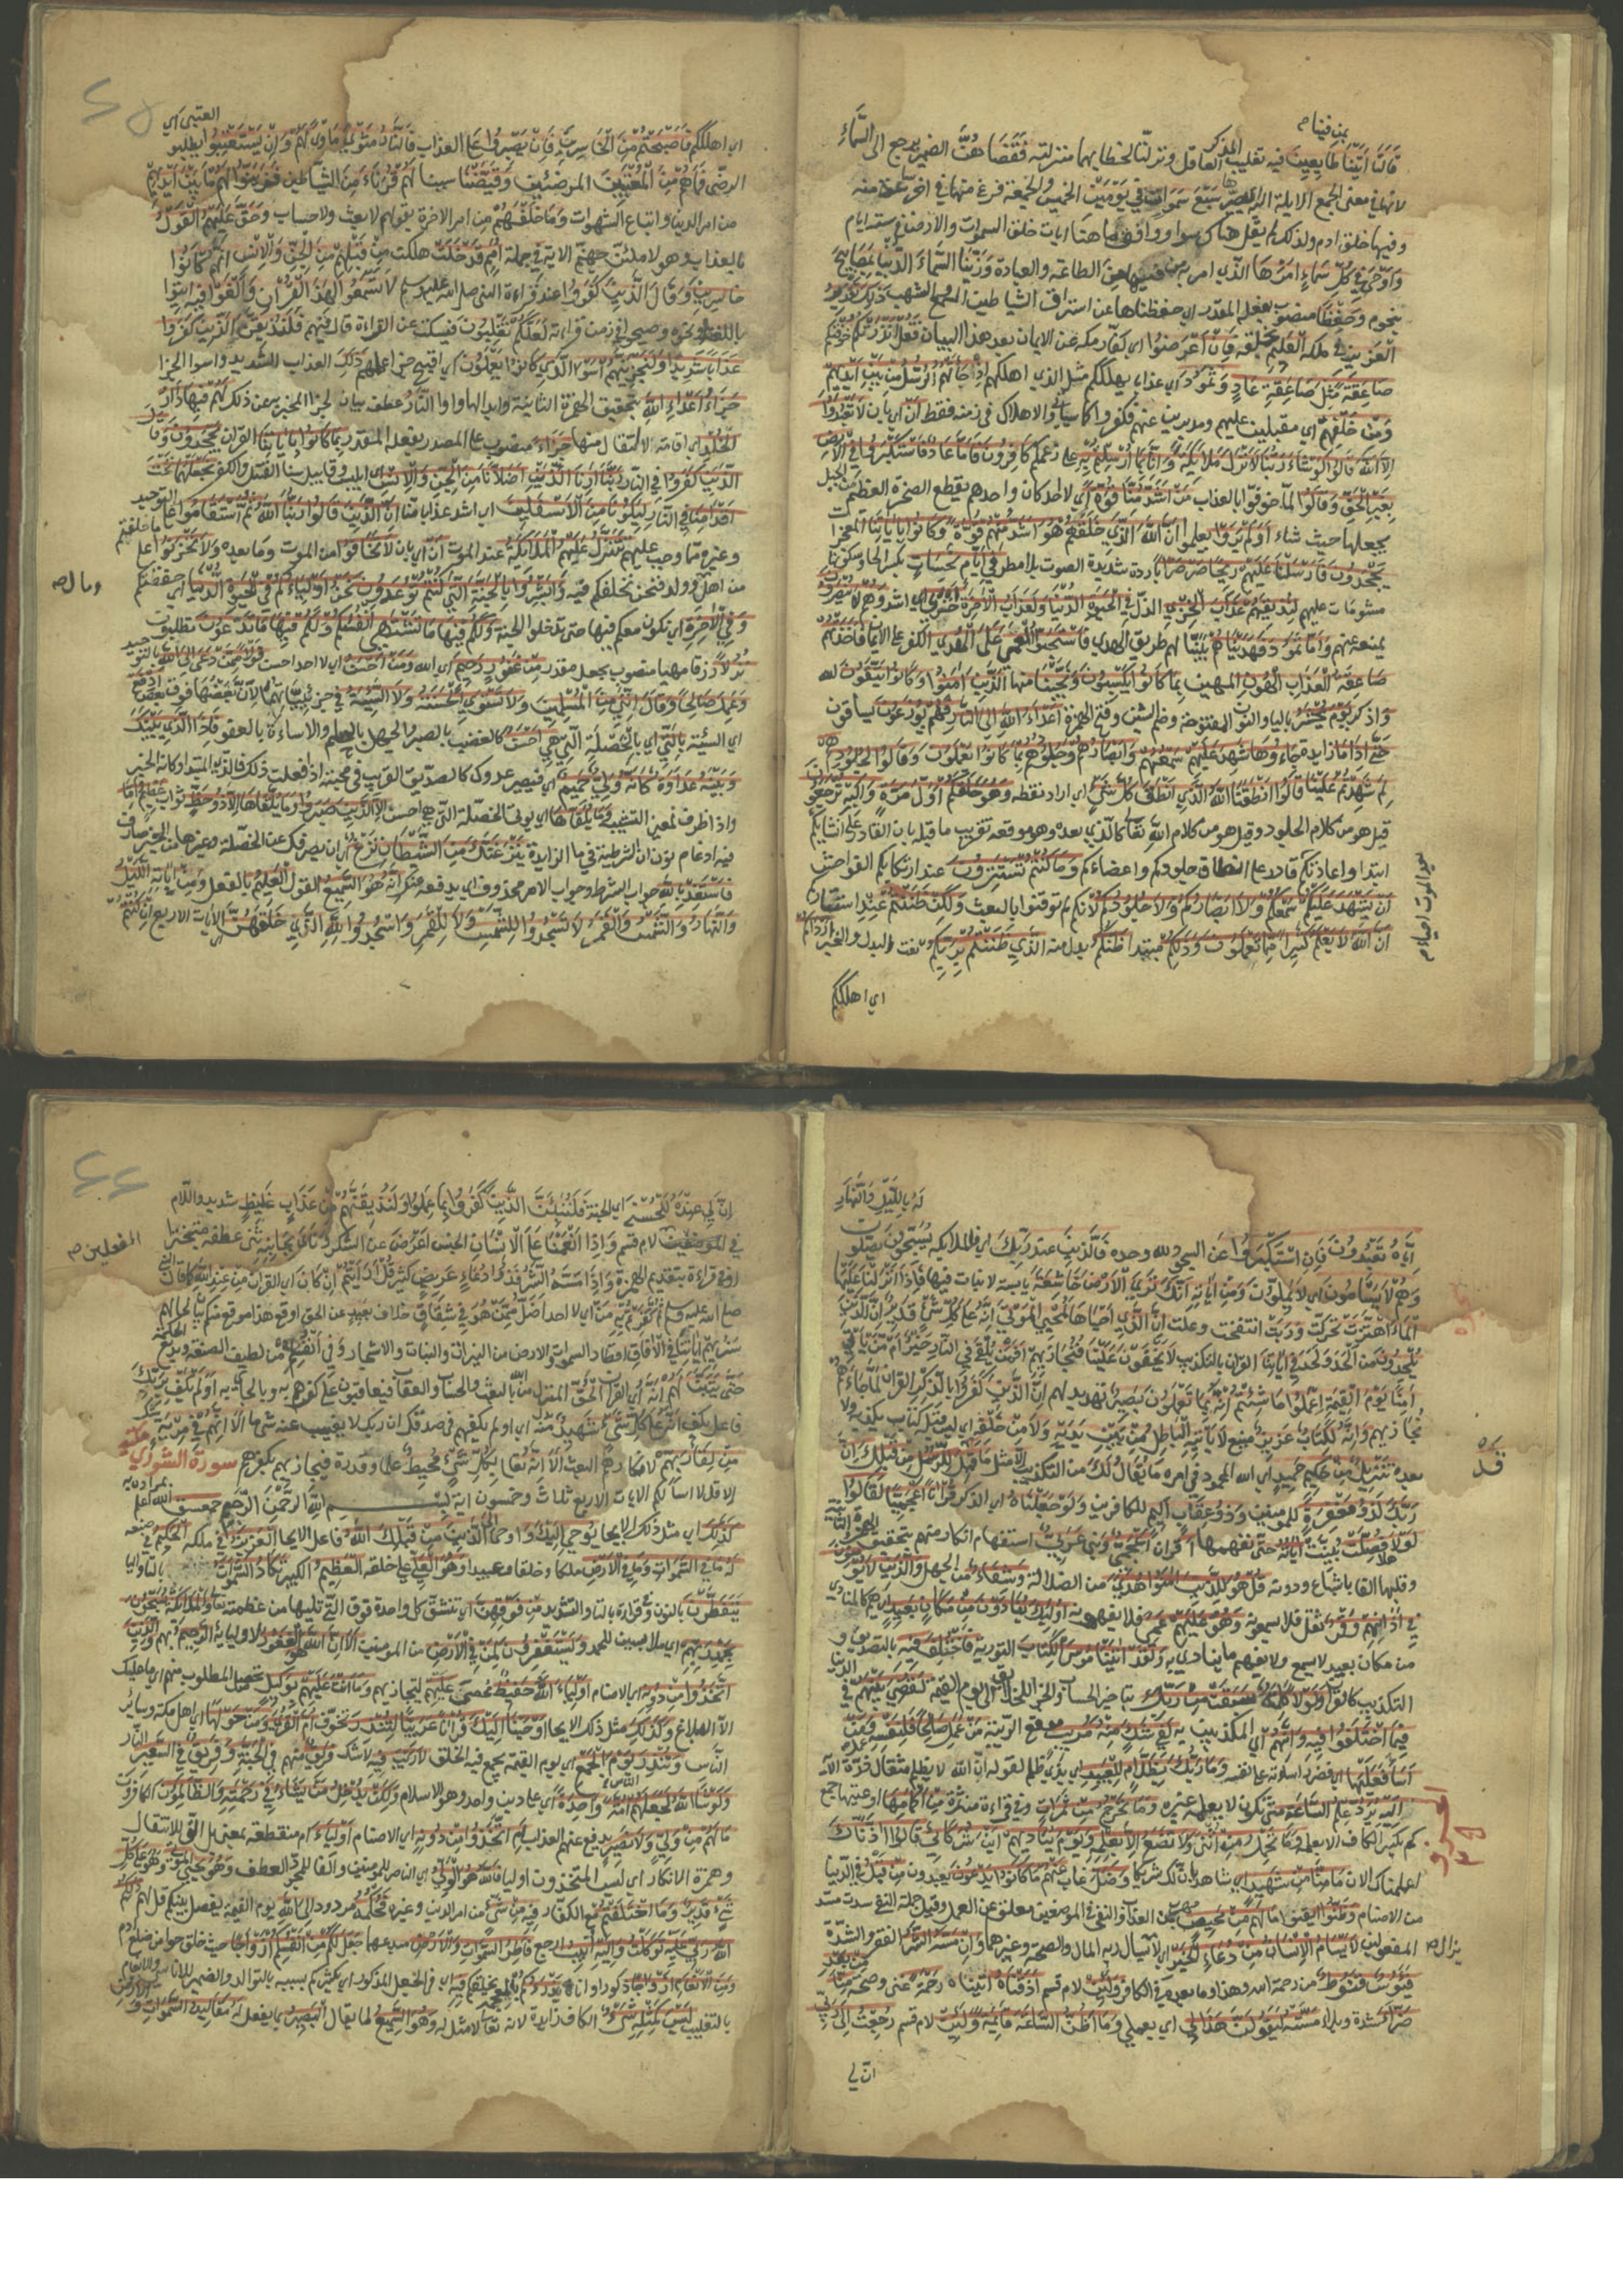 بمن فينا
قَالَتَا أَتَيْنَا طَائِعِينَ فيه تغليب المذكر العاقل ونزلتا لخطابهما منزلته فَقَضَاهُنَّ الضمير يرجع الى السَّمَاءِ
لانها في معنى الجمع الايلة اليه صيرها سَبْعَ سَمَوَاتٍ فِي يَوْمَيْنِ الخميس والجمعة فرغ منها في اخر ساعة منه
وفيها خلق ادم ولذلك لم يقل هنا سواء ووافق ما هنا ايات خلق السموات والارض في ستة ايام
وَأَوْحَى فِي كُلِّ سَمَاءٍ أَمْرَهَا الذي امر به من فيها من الطاعة والعبادة وَزَيَّنَّا السَّمَاءَ الدُّنْيَا بِمَصَابِيحَ
بنجوم وَحِفْظًا منصوب بفعله المقدر اي حفظناها عن استراق الشياطين السمع بالشهب ذَلِكَ تَقْدِيرُ
الْعَزِيزِ في ملكه الْعَلِيمِ بخلقه فَإِنْ أَعْرَضُوا اي كفار مكة عن الايمان بعد هذا البيان فَقُلْ أَنْذَرْتُكُمْ خوفتكم
صَاعِقَةً مِثْلَ صَاعِقَةِ عَادٍ وَثَمُودَ اي عذابا يهلككم مثل الذي اهلكهم إِذْ جَاءَتْهُمُ الرُّسُلُ مِنْ بَيْنِ أَيْدِيهِمْ
وَمِنْ خَلْفِهِمْ اي مقبلين عليهم ومدبرين عنهم فكفروا كما سيأتي والاهلاك في زمنه فقط أَنْ اي بان لَا تَعْبُدُوا
إِلَّا اللَّهَ قَالُوا لَوْ شَاءَ رَبُّنَا لَأَنْزَلَ مَلَائِكَةً فَإِنَّا بِمَا أُرْسِلْتُمْ بِهِ على زعمكم كَافِرُونَ فَأَمَّا عَادٌ فَاسْتَكْبَرُوا فِي الْأَرْضِ
بِغَيْرِ الْحَقِّ وَقَالُوا لما خوفوا بالعذاب مَنْ أَشَدُّ مِنَّا قُوَّةً اي لا احد كان واحدهم يقطع الصخرة العظيمة من الجبل
يجعلها حيث شاء أَوَلَمْ يَرَوْا يعلموا أَنَّ اللَّهَ الَّذِي خَلَقَهُمْ هُوَ أَشَدُّ مِنْهُمْ قُوَّةً وَكَانُوا بِآيَاتِنَا المعجزات
يَجْحَدُونَ فَأَرْسَلْنَا عَلَيْهِمْ رِيحًا صَرْصَرًا باردة شديدة الصوت بلا مطر فِي أَيَّامٍ نَحِسَاتٍ بكسر الحاء وسكونها
مشؤمات عليهم لِنُذِيقَهُمْ عَذَابَ الْخِزْيِ الذل فِي الْحَيَاةِ الدُّنْيَا وَلَعَذَابُ الْآخِرَةِ أَخْزَى اشد وَهُمْ لَا يُنْصَرُونَ
يمنعه عنهم وَأَمَّا ثَمُودُ فَهَدَيْنَاهُمْ بينا لهم طريق الهدى فَاسْتَحَبُّوا الْعَمَى عَلَى الْهُدَى الكفر على الايمان فَأَخَذَتْهُمْ
صَاعِقَةُ الْعَذَابِ الْهُونِ المهين بِمَا كَانُوا يَكْسِبُونَ وَنَجَّيْنَا منها الَّذِينَ آمَنُوا وَكَانُوا يَتَّقُونَ الله
وَاذكر يَوْمَ يُحْشَرُ بالياء والنون المفتوحة وضم الشين وفتح الهمزة أَعْدَاءُ اللَّهِ إِلَى النَّارِ فَهُمْ يُوزَعُونَ يساقون
حَتَّى إِذَا مَا زائدة جَاءُوهَا شَهِدَ عَلَيْهِمْ سَمْعُهُمْ وَأَبْصَارُهُمْ وَجُلُودُهُمْ بِمَا كَانُوا يَعْمَلُونَ وَقَالُوا لِجُلُودِهِمْ
لِمَ شَهِدْتُمْ عَلَيْنَا قَالُوا أَنْطَقَنَا اللَّهُ الَّذِي أَنْطَقَ كُلَّ شَيْءٍ اي اراد نطقه وَهُوَ خَلَقَكُمْ أَوَّلَ مَرَّةٍ وَإِلَيْهِ تُرْجَعُونَ
قيل هو من كلام الجلود وقيل هو من كلام الله تعالى كالذي بعده وهو موقعه تقريب ما قبله بان القادر على انشائكم
ابتداء واعادتكم قادر على انطاق جلودكم واعضائكم وَمَا كُنْتُمْ تَسْتَتِرُونَ عند ارتكابكم الفواحش
أَنْ يَشْهَدَ عَلَيْكُمْ سَمْعُكُمْ وَلَا أَبْصَارُكُمْ وَلَا جُلُودُكُمْ لانكم لم توقنوا بالبعث وَلَكِنْ ظَنَنْتُمْ عند استتار
أَنَّ اللَّهَ لَا يَعْلَمُ كَثِيرًا مِمَّا تَعْمَلُونَ وَذَلِكُمْ مبتدا ظَنُّكُمُ بدل منه الَّذِي ظَنَنْتُمْ بِرَبِّكُمْ نعت البدل والخبر أَرْدَاكُمْ
اي اهلككم
اي اهلككم فَأَصْبَحْتُمْ مِنَ الْخَاسِرِينَ فَإِنْ يَصْبِرُوا على العذاب فَالنَّارُ مَثْوًى مأوى لَهُمْ وَإِنْ يَسْتَعْتِبُوا يطلبوا العتبى اي
الرضى فَمَا هُمْ مِنَ الْمُعْتَبِينَ المرضيين وَقَيَّضْنَا سببنا لَهُمْ قُرَنَاءَ من الشياطين فَزَيَّنُوا لَهُمْ مَا بَيْنَ أَيْدِيهِمْ
من امر الدنيا واتباع الشهوات وَمَا خَلْفَهُمْ من امر الاخرة بقولهم لا بعث ولا حساب وَحَقَّ عَلَيْهِمُ الْقَوْلُ
بالعذاب وهو لاملئن جهنم الاية فِي جملة أُمَمٍ قَدْ خَلَتْ هلكت مِنْ قَبْلِهِمْ مِنَ الْجِنِّ وَالْإِنْسِ إِنَّهُمْ كَانُوا
خَاسِرِينَ وَقَالَ الَّذِينَ كَفَرُوا عند قراءة النبي صلى الله عليه وسلم لَا تَسْمَعُوا لِهَذَا الْقُرْآنِ وَالْغَوْا فِيهِ ائتوا
باللغط ونحوه وصيحوا في زمن قراءته لَعَلَّكُمْ تَغْلِبُونَ فيسكت عن القراءة قال فيهم فَلَنُذِيقَنَّ الَّذِينَ كَفَرُوا
عَذَابًا شَدِيدًا وَلَنَجْزِيَنَّهُمْ أَسْوَأَ الَّذِي كَانُوا يَعْمَلُونَ اي اقبح جزاء عملهم ذَلِكَ العذاب الشديد واسوأ الجزاء
جَزَاءُ أَعْدَاءِ اللَّهِ بتحقيق الهمزة الثانية وابدالها واوا النَّارُ عطف بيان لجزاء المخبر به عن ذلك لَهُمْ فِيهَا دَارُ
الْخُلْدِ اي اقامة لا انتقال منها جَزَاءً منصوب على المصدر بفعله المقدر بِمَا كَانُوا بِآيَاتِنَا القران يَجْحَدُونَ وَقَالَ
الَّذِينَ كَفَرُوا في النار رَبَّنَا أَرِنَا الَّذَيْنِ أَضَلَّانَا مِنَ الْجِنِّ وَالْإِنْسِ اي ابليس وقابيل سنا القتل والكفر نَجْعَلْهُمَا تَحْتَ
أَقْدَامِنَا في النار لِيَكُونَا مِنَ الْأَسْفَلِينَ اي اشد عذابا منا إِنَّ الَّذِينَ قَالُوا رَبُّنَا اللَّهُ ثُمَّ اسْتَقَامُوا على التوحيد
وغيره مما وجب عليهم تَتَنَزَّلُ عَلَيْهِمُ الْمَلَائِكَةُ عند الموت أَنْ اي بان لَا تَخَافُوا من الموت وما بعده وَلَا تَحْزَنُوا على ما خلفتم
من اهل وولد فنحن نخلفكم فيه وَأَبْشِرُوا بِالْجَنَّةِ الَّتِي كُنْتُمْ تُوعَدُونَ نَحْنُ أَوْلِيَاؤُكُمْ فِي الْحَيَاةِ الدُّنْيَا اي حفظتكم
وَفِي الْآخِرَةِ اي نكون معكم فيها حتى تدخلوا الجنة وَلَكُمْ فِيهَا مَا تَشْتَهِي أَنْفُسُكُمْ وَلَكُمْ فِيهَا مَا تَدَّعُونَ تطلبون
نُزُلًا رزقا مهيأ منصوب بجعل مقدر مِنْ غَفُورٍ رَحِيمٍ اي الله وَمَنْ أَحْسَنُ اي لا احد احسن قَوْلًا مِمَّنْ دَعَا إِلَى اللَّهِ بالتوحيد
وَعَمِلَ صَالِحًا وَقَالَ إِنَّنِي مِنَ الْمُسْلِمِينَ وَلَا تَسْتَوِي الْحَسَنَةُ وَلَا السَّيِّئَةُ في جزئياتهما لان بعضها فوق بعض ادْفَعْ
اي السيئة بِالَّتِي اي بالخصلة التي هِيَ أَحْسَنُ كالغضب بالصبر والجهل بالحلم والاساءة بالعفو فَإِذَا الَّذِي بَيْنَكَ
وَبَيْنَهُ عَدَاوَةٌ كَأَنَّهُ وَلِيٌّ حَمِيمٌ اي فيصير عدوك كالصديق القريب في محبته اذا فعلت ذلك فالذي المبتدا وكانه الخبر
واذا ظرف لمعنى التشبيه وَمَا يُلَقَّاهَا اي يؤتى الخصلة التي هي احسن إِلَّا الَّذِينَ صَبَرُوا وَمَا يُلَقَّاهَا إِلَّا ذُو حَظٍّ ثواب عَظِيمٍ وَإِمَّا
فيه ادغام نون ان الشرطية في ما الزايدة يَنْزَغَنَّكَ مِنَ الشَّيْطَانِ نَزْغٌ اي ان يصرفك عن الخصلة وغيرها من الخير صارف
فَاسْتَعِذْ بِاللَّهِ جواب الشرط وجواب الامر محذوف اي يدفعه عنك إِنَّهُ هُوَ السَّمِيعُ للقول الْعَلِيمُ بالفعل وَمِنْ آيَاتِهِ اللَّيْلُ
وَالنَّهَارُ وَالشَّمْسُ وَالْقَمَرُ لَا تَسْجُدُوا لِلشَّمْسِ وَلَا لِلْقَمَرِ وَاسْجُدُوا لِلَّهِ الَّذِي خَلَقَهُنَّ اي الايات الاربع إِنْ كُنْتُمْ
لَهُ بِاللَّيْلِ وَالنَّهَارِ
إِيَّاهُ تَعْبُدُونَ فَإِنِ اسْتَكْبَرُوا عن السجود لله وحده فَالَّذِينَ عِنْدَ رَبِّكَ اي الملائكة يُسَبِّحُونَ يصلون
وَهُمْ لَا يَسْأَمُونَ اي لا يملون وَمِنْ آيَاتِهِ أَنَّكَ تَرَى الْأَرْضَ خَاشِعَةً يابسة لا نبات فيها فَإِذَا أَنْزَلْنَا عَلَيْهَا
الْمَاءَ اهْتَزَّتْ تحركت وَرَبَتْ انتفخت وعلت إِنَّ الَّذِي أَحْيَاهَا لَمُحْيِي الْمَوْتَى إِنَّهُ عَلَى كُلِّ شَيْءٍ قَدِيرٌ إِنَّ الَّذِينَ
يُلْحِدُونَ من الحد ولحد فِي آيَاتِنَا القران بالتكذيب لَا يَخْفَوْنَ عَلَيْنَا فنجازيهم أَفَمَنْ يُلْقَى فِي النَّارِ خَيْرٌ أَمْ مَنْ يَأْتِي
آمِنًا يَوْمَ الْقِيَامَةِ اعْمَلُوا مَا شِئْتُمْ إِنَّهُ بِمَا تَعْمَلُونَ بَصِيرٌ تهديد لهم إِنَّ الَّذِينَ كَفَرُوا بِالذِّكْرِ القران لَمَّا جَاءَهُمْ
نجازيهم وَإِنَّهُ لَكِتَابٌ عَزِيزٌ منيع لَا يَأْتِيهِ الْبَاطِلُ مِنْ بَيْنِ يَدَيْهِ وَلَا مِنْ خَلْفِهِ اي ليس قبله كتاب يكذبه ولا
بعده تَنْزِيلٌ مِنْ حَكِيمٍ حَمِيدٍ اي الله المحمود في امره مَا يُقَالُ لَكَ من التكذيب إِلَّا مثل مَا قَدْ قِيلَ لِلرُّسُلِ مِنْ قَبْلِكَ إِنَّ
رَبَّكَ لَذُو مَغْفِرَةٍ للمؤمنين وَذُو عِقَابٍ أَلِيمٍ للكافرين وَلَوْ جَعَلْنَاهُ اي الذكر قُرْآنًا أَعْجَمِيًّا لَقَالُوا
لَوْلَا هلا فُصِّلَتْ بينت آيَاتُهُ حتى نفهمها أَقران أَعْجَمِيٌّ وَنبي عَرَبِيٌّ استفهام انكار منهم بتحقيق الهمزة الثانية
وقلبها الفا باشباع ودونه قُلْ هُوَ لِلَّذِينَ آمَنُوا هُدًى من الضلالة وَشِفَاءٌ من الجهل وَالَّذِينَ لَا يُؤْمِنُونَ
فِي آذَانِهِمْ وَقْرٌ ثقل فلا يسمعونه وَهُوَ عَلَيْهِمْ عَمًى فلا يفهمونه أُولَئِكَ يُنَادَوْنَ مِنْ مَكَانٍ بَعِيدٍ اي هم كالمنادى
من مكان بعيد لا يسمع ولا يفهم ما ينادى به وَلَقَدْ آتَيْنَا مُوسَى الْكِتَابَ التورية فَاخْتُلِفَ فِيهِ بالتصديق و
التكذيب كالقران وَلَوْلَا كَلِمَةٌ سَبَقَتْ مِنْ رَبِّكَ بتاخير الحساب والجزاء للخلائق الى يوم القيمة لَقُضِيَ بَيْنَهُمْ في الدنيا
فيما اختلفوا فيه وَإِنَّهُمْ اي المكذبين به لَفِي شَكٍّ مِنْهُ مُرِيبٍ موقع الريبة مَنْ عَمِلَ صَالِحًا فَلِنَفْسِهِ عمل وَمَنْ
أَسَاءَ فَعَلَيْهَا اي فضرر اساءته على نفسه وَمَا رَبُّكَ بِظَلَّامٍ لِلْعَبِيدِ اي بذي ظلم لقوله ان الله لا يظلم مثقال ذرة الآ
إِلَيْهِ يُرَدُّ عِلْمُ السَّاعَةِ متى تكون لا يعلمه غيره وَمَا تَخْرُجُ مِنْ ثَمَرَاتٍ وفي قراءة ثمرة مِنْ أَكْمَامِهَا اوعيتها جمع
كم بكسر الكاف الا بعلمه وَمَا تَحْمِلُ مِنْ أُنْثَى وَلَا تَضَعُ إِلَّا بِعِلْمِهِ وَيَوْمَ يُنَادِيهِمْ أَيْنَ شُرَكَائِي قَالُوا آذَنَّاكَ
اعلمناك الان مَا مِنَّا مِنْ شَهِيدٍ اي شاهد بان لك شريكا وَضَلَّ غاب عَنْهُمْ مَا كَانُوا يَدْعُونَ يعبدون مِنْ قَبْلُ في الدنيا
من الاصنام وَظَنُّوا ايقنوا مَا لَهُمْ مِنْ مَحِيصٍ مهرب من العذاب والنفي في الموضعين معلق عن العمل وقيل جملة النفي سدت مسد
المفعولين لَا يَسْأَمُ الْإِنْسَانُ مِنْ دُعَاءِ الْخَيْرِ اي لا يزال يسال ربه المال والصحة وغيرهما وَإِنْ مَسَّهُ الشَّرُّ الفقر والشدة
فَيَئُوسٌ قَنُوطٌ من رحمة الله وهذا وما بعده في الكافر وَلَئِنْ لام قسم أَذَقْنَاهُ اتيناه رَحْمَةً غنى وصحة مِنَّا مِنْ بَعْدِ
ضَرَّاءَ شدة وبلاء مَسَّتْهُ لَيَقُولَنَّ هَذَا لِي اي بعملي وَمَا أَظُنُّ السَّاعَةَ قَائِمَةً وَلَئِنْ لام قسم رُجِعْتُ إِلَى رَبِّي
ان لي
إِنَّ لِي عِنْدَهُ لَلْحُسْنَى اي الجنة فَلَنُنَبِّئَنَّ الَّذِينَ كَفَرُوا بِمَا عَمِلُوا وَلَنُذِيقَنَّهُمْ مِنْ عَذَابٍ غَلِيظٍ شديد واللام
في الموضعين لام قسم وَإِذَا أَنْعَمْنَا عَلَى الْإِنْسَانِ الجنس أَعْرَضَ عن الشكر وَنَأَى بِجَانِبِهِ ثنى عطفه متبخترا
وفي قراءة بتقديم الهمزة وَإِذَا مَسَّهُ الشَّرُّ فَذُو دُعَاءٍ عَرِيضٍ كثير قُلْ أَرَأَيْتُمْ إِنْ كَانَ اي القران مِنْ عِنْدِ اللَّهِ كما قال النبي
صلى الله عليه وسلم ثُمَّ كَفَرْتُمْ بِهِ مَنْ اي لا احد أَضَلُّ مِمَّنْ هُوَ فِي شِقَاقٍ خلاف بَعِيدٍ عن الحق اوقع هذا موقع منكم بيانا لحالهم
سَنُرِيهِمْ آيَاتِنَا فِي الْآفَاقِ اقطار السموات والارض من النيرات والنبات والاشجار وَفِي أَنْفُسِهِمْ من لطيف الصنعة وبديع الحكمة
حَتَّى يَتَبَيَّنَ لَهُمْ أَنَّهُ اي القران الْحَقُّ المنزل من الله بالبعث والحساب والعقاب فيعاقبون على كفرهم به وبالجائي به أَوَلَمْ يَكْفِ بِرَبِّكَ
فاعل يكف أَنَّهُ عَلَى كُلِّ شَيْءٍ شَهِيدٌ بدل منه اي اولم يكفهم في صدقك ان ربك لا يغيب عنه شيء ما أَلَا إِنَّهُمْ فِي مِرْيَةٍ شك
مِنْ لِقَاءِ رَبِّهِمْ لانكارهم البعث أَلَا إِنَّهُ تعالى بِكُلِّ شَيْءٍ مُحِيطٌ علما وقدرة فيجازيهم بكفرهم سورة الشورى مكية
الا قل لا اسالكم الايات الاربع ثلاث وخمسون اية بسم الله الرحمن الرحيم حم عسق الله اعلم بمراده به
كَذَلِكَ اي مثل ذلك الايحاء يُوحِي إِلَيْكَ وَاوحى إِلَى الَّذِينَ مِنْ قَبْلِكَ اللَّهُ فاعل الايحاء الْعَزِيزُ في ملكه الْحَكِيمُ في صنعه
لَهُ مَا فِي السَّمَوَاتِ وَمَا فِي الْأَرْضِ ملكا وخلقا وعبيدا وَهُوَ الْعَلِيُّ على خلقه الْعَظِيمُ الكبير تَكَادُ السَّمَوَاتُ بالتا واليا
يَنْفَطِرْنَ بالنون وفي قراءة بالتا والتشديد مِنْ فَوْقِهِنَّ اي تنشق كل واحدة فوق التي تليها من عظمته تعالى وَالْمَلَائِكَةُ يُسَبِّحُونَ
بِحَمْدِ رَبِّهِمْ اي ملابسين للحمد وَيَسْتَغْفِرُونَ لِمَنْ فِي الْأَرْضِ من المؤمنين أَلَا إِنَّ اللَّهَ هُوَ الْغَفُورُ لاوليائه الرَّحِيمُ بهم وَالَّذِينَ
اتَّخَذُوا مِنْ دُونِهِ اي الاصنام أَوْلِيَاءَ اللَّهُ حَفِيظٌ محص عَلَيْهِمْ ليجازيهم وَمَا أَنْتَ عَلَيْهِمْ بِوَكِيلٍ تحصل المطلوب منهم ما عليك
الا البلاغ وَكَذَلِكَ مثل ذلك الايحاء أَوْحَيْنَا إِلَيْكَ قُرْآنًا عَرَبِيًّا لِتُنْذِرَ تخوف أُمَّ الْقُرَى وَمَنْ حَوْلَهَا اي اهل مكة وسائر
الناس وَتُنْذِرَ يَوْمَ الْجَمْعِ اي يوم القيمة يجمع فيه الخلق لَا رَيْبَ فِيهِ لا شك فَرِيقٌ منهم فِي الْجَنَّةِ وَفَرِيقٌ فِي السَّعِيرِ النار
وَلَوْ شَاءَ اللَّهُ لَجَعَلَهُمْ أُمَّةً وَاحِدَةً اي على دين واحد وهو الاسلام وَلَكِنْ يُدْخِلُ مَنْ يَشَاءُ فِي رَحْمَتِهِ وَالظَّالِمُونَ الكافرون
مَا لَهُمْ مِنْ وَلِيٍّ وَلَا نَصِيرٍ يدفع عنهم العذاب أَمِ اتَّخَذُوا مِنْ دُونِهِ اي الاصنام أَوْلِيَاءَ ام منقطعة بمعنى بل التي للانتقال
وهمزة الانكار اي ليس المتخذون اولياء فَاللَّهُ هُوَ الْوَلِيُّ اي الناصر للمؤمنين والفاء لمجرد العطف وَهُوَ يُحْيِي الْمَوْتَى وَهُوَ عَلَى كُلِّ
شَيْءٍ قَدِيرٌ وَمَا اخْتَلَفْتُمْ مع الكفار فِيهِ مِنْ شَيْءٍ من امر الدين وغيره فَحُكْمُهُ مردود إِلَى اللَّهِ يوم القيمة يفصل بينكم قل لهم ذَلِكُمُ
اللَّهُ رَبِّي عَلَيْهِ تَوَكَّلْتُ وَإِلَيْهِ أُنِيبُ ارجع فَاطِرُ السَّمَوَاتِ وَالْأَرْضِ مبدعهما جَعَلَ لَكُمْ مِنْ أَنْفُسِكُمْ أَزْوَاجًا حيث خلق حوا من ضلع ادم
وَمِنَ الْأَنْعَامِ أَزْوَاجًا ذكورا واناثا يَذْرَؤُكُمْ بالمعجمة يخلقكم فِيهِ اي في الجعل المذكور اي يكثركم بسببه بالتوالد والضمير للاناسي والانعام
بالتغليب لَيْسَ كَمِثْلِهِ شَيْءٌ الكاف زايدة لانه تعالى لا مثل له وَهُوَ السَّمِيعُ لما يقال الْبَصِيرُ بما يفعل لَهُ مَقَالِيدُ السَّمَوَاتِ وَالْأَرْضِ